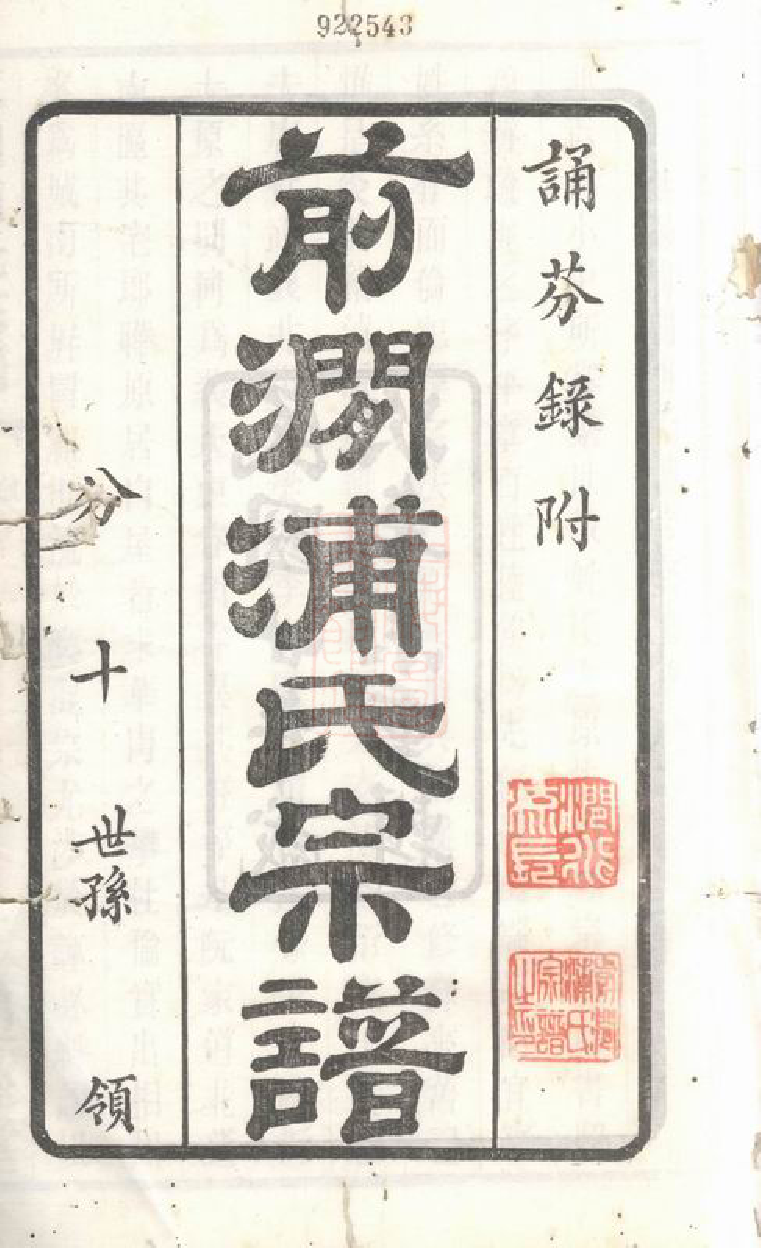 922543
誦芬錄附
前澗浦氏宗譜
分 十 世孫 領